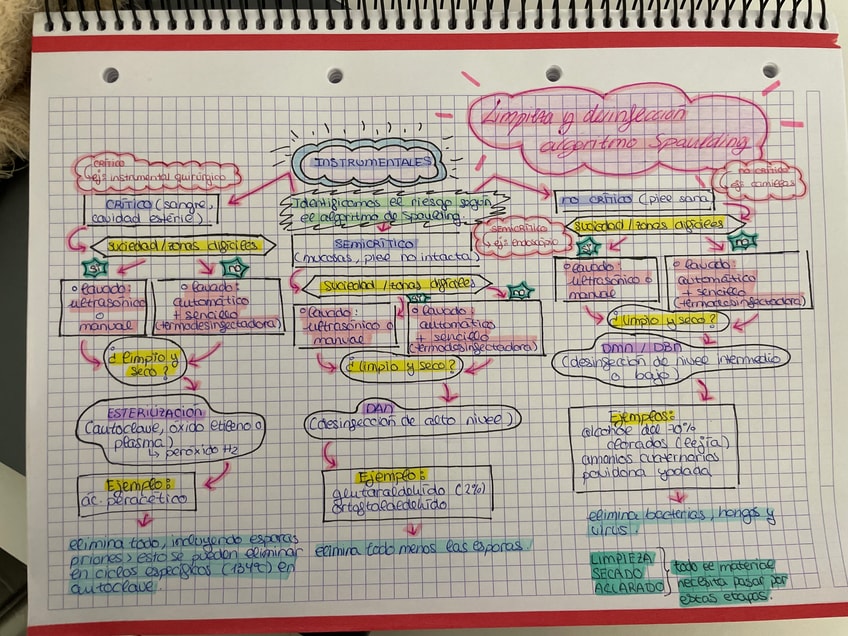 Limpieza y desinfección
algoritmo Spaulding
INSTRUMENTALES
Identificamos el riesgo según
el algoritmo de Spaulding.
CRÍTICO
↳ ej: instrumental quirúrgico
CRÍTICO (sangre,
cavidad estéril)
suciedad/zonas difíciles
SI
NO
• lavado:
ultrasónico
o
manual
• lavado:
automático
+ sencillo
(termodesinfectadora)
¿limpio y
seco?
ESTERILIZACIÓN
(autoclave, óxido etileno o
plasma)
↳ peróxido H2
Ejemplo:
ác. peracético
elimina todo, incluyendo esporas
priones > esto se pueden eliminar
en ciclos específicos (134ºC) en
autoclave.
SEMICRÍTICO
(mucosas, piel no intacta)
SEMICRÍTICO
↳ ej: endoscopio
suciedad/zonas difíciles
SI
NO
• lavado:
ultrasónico o
manual
• lavado:
automático
+ sencillo
(termodesinfectadora)
¿limpio y seco?
DAN
(desinfección de alto nivel)
Ejemplo:
glutaraldehído (2%)
ortoftaldehído
elimina todo menos las esporas.
no crítico
ej: camillas
no CRÍTICO (piel sana)
suciedad/zonas difíciles
SI
NO
• lavado:
ultrasónico o
manual
• lavado:
automático
+ sencillo
(termodesinfectadora)
¿limpio y seco?
DMN / DBN
(desinfección de nivel intermedio
o bajo)
Ejemplos:
alcohol del 70%
clorados (lejía)
amonios cuaternarios
povidona yodada
elimina bacterias, hongos y
virus.
LIMPIEZA
SECADO
ACLARADO
todo el material
necesita pasar por
estas etapas.